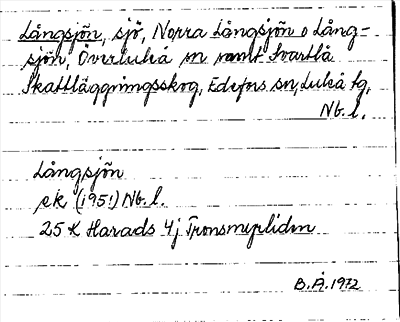 Långsjön, sjö, Norra Långsjön o Lång-
sjön, Överluleå sn samt Svartlå
Skattläggningsskog, Edefors sn, Luleå tg,
Nb. l.
Långsjön
ek (1951) Nb. l.
25 K Harads 4j Tronsmyrliden
B.Å. 1972